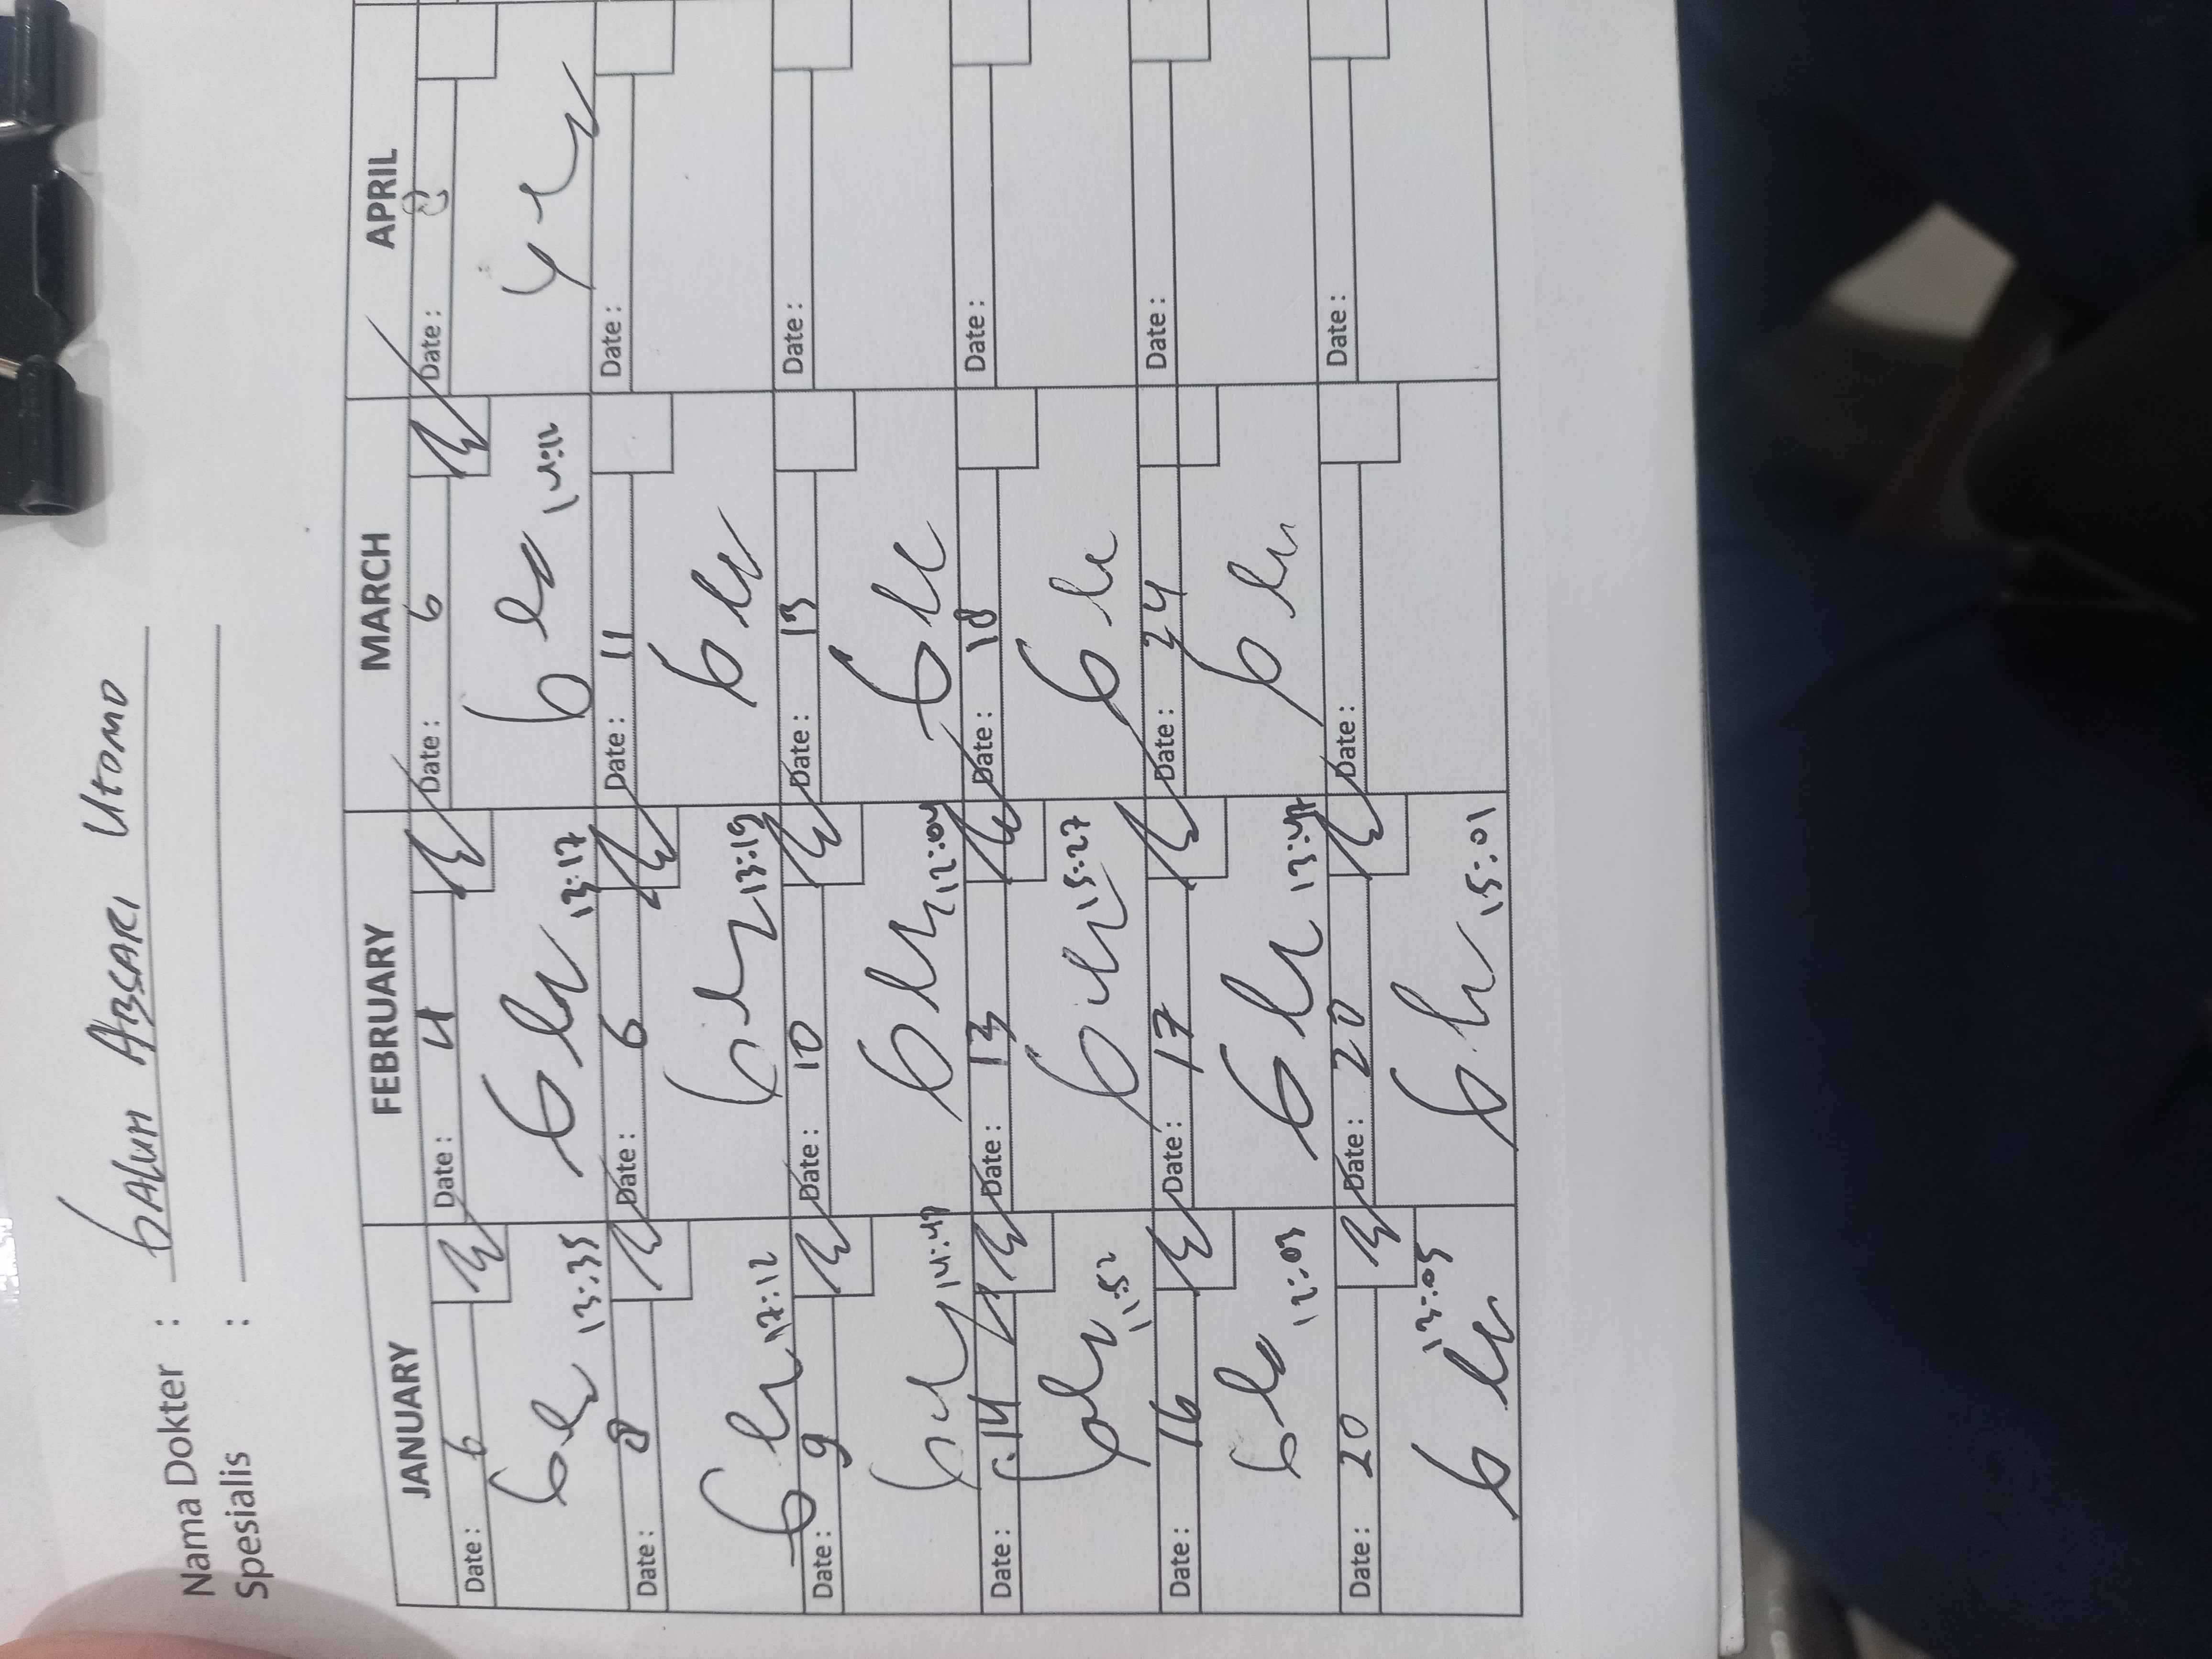 Nama Dokter : GALUH ABSARI UTOMO
Spesialis :
JANUARY FEBRUARY MARCH APRIL
Date : 6 Date : 4 Date : 6 Date : 2
13:35 13:17 14:12
Date : 8 Date : 6 Date : 11 Date :
17:12 13:19
Date : 9 Date : 10 Date : 13 Date :
14:47 12:04
Date : 14 Date : 13 Date : 18 Date :
11:52 15:27
Date : 16 Date : 17 Date : 24 Date :
12:03 13:47
Date : 20 Date : 20 Date : Date :
13:05 15:01